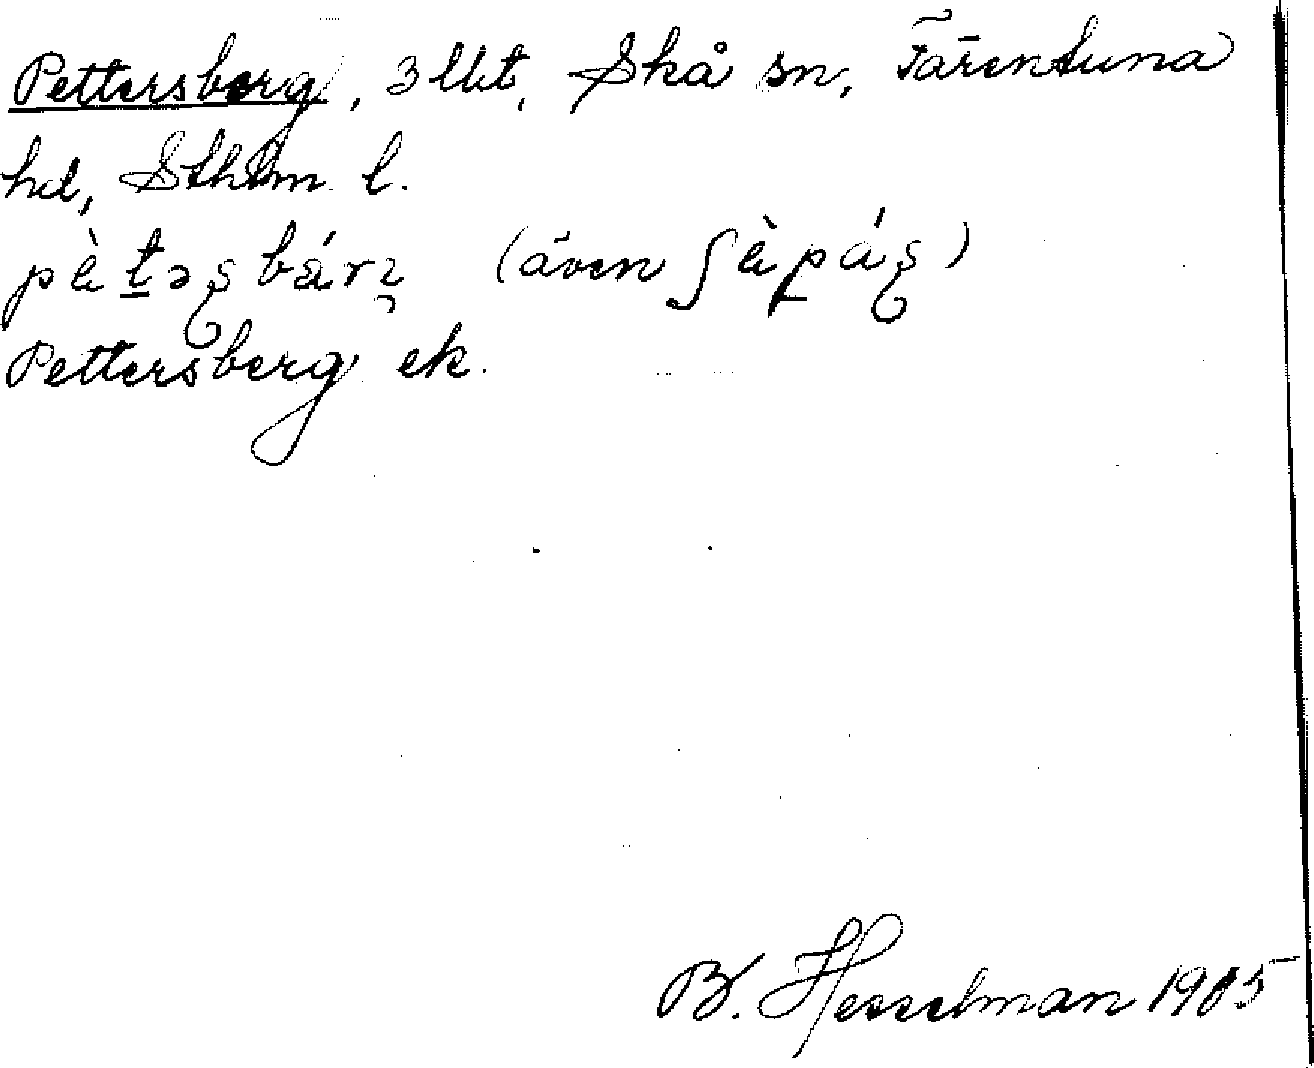 Pettersberg, 3 lht, Skå sn, Färentuna
hd, Sthlm l.
pètəʂbárɪ (även ʃàpáʂ)
Pettersberg ek.
B. Hesselman 1905